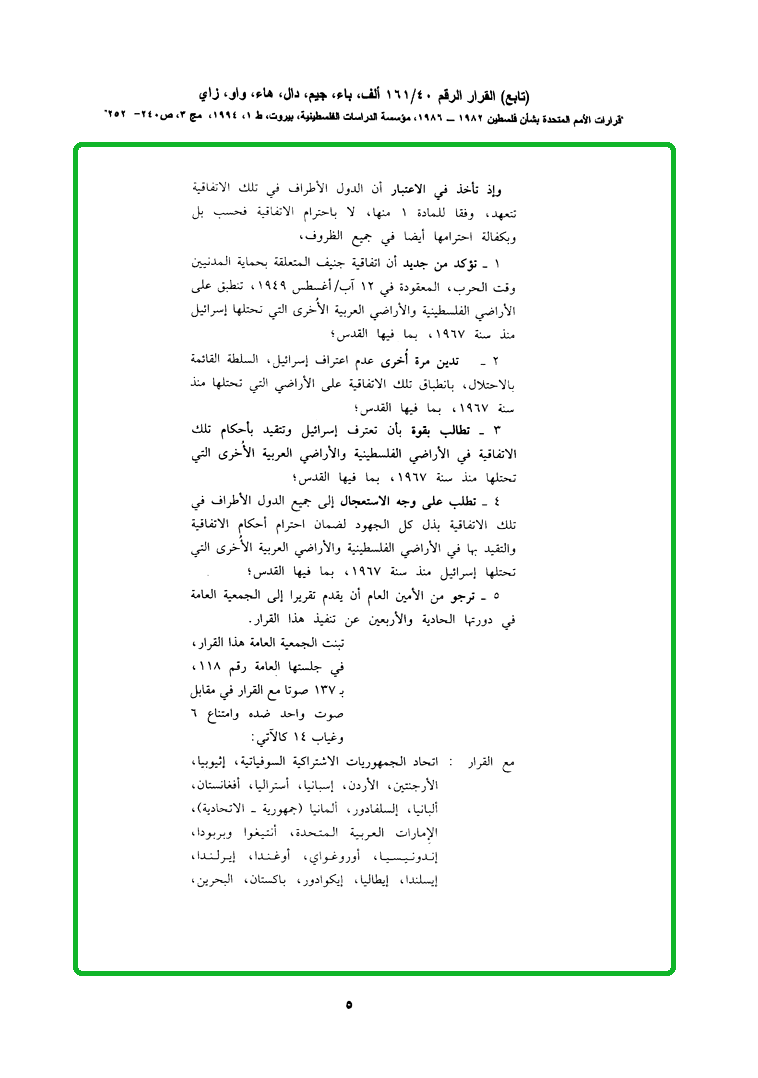 (تابع) القرار الرقم ١٦١/٤٠ ألف، باء، جيم، دال، هاء، واو، زاي
"قرارات الأمم المتحدة بشأن فلسطين ١٩٨٢ – ١٩٨٦، مؤسسة الدراسات الفلسطينية، بيروت، ط ١، ١٩٩٤، مج ٣، ص٢٤٠- ٢٥٢"
وإذ تأخذ في الاعتبار أن الدول الأطراف في تلك الاتفاقية
تتعهد، وفقا للمادة ١ منها، لا باحترام الاتفاقية فحسب بل
وبكفالة احترامها أيضا في جميع الظروف،
١ ـ تؤكد من جديد أن اتفاقية جنيف المتعلقة بحماية المدنيين
وقت الحرب، المعقودة في ١٢ آب/أغسطس ١٩٤٩، تنطبق على
الأراضي الفلسطينية والأراضي العربية الأُخرى التي تحتلها إسرائيل
منذ سنة ١٩٦٧، بما فيها القدس؛
٢ ـ تدين مرة أُخرى عدم اعتراف إسرائيل، السلطة القائمة
بالاحتلال، بانطباق تلك الاتفاقية على الأراضي التي تحتلها منذ
سنة ١٩٦٧، بما فيها القدس؛
٣ ـ تطالب بقوة بأن تعترف إسرائيل وتتقيد بأحكام تلك
الاتفاقية في الأراضي الفلسطينية والأراضي العربية الأُخرى التي
تحتلها منذ سنة ١٩٦٧، بما فيها القدس؛
٤ ـ تطلب على وجه الاستعجال إلى جميع الدول الأطراف في
تلك الاتفاقية بذل كل الجهود لضمان احترام أحكام الاتفاقية
والتقيد بها في الأراضي الفلسطينية والأراضي العربية الأُخرى التي
تحتلها إسرائيل منذ سنة ١٩٦٧، بما فيها القدس؛
٥ ـ ترجو من الأمين العام أن يقدم تقريرا إلى الجمعية العامة
في دورتها الحادية والأربعين عن تنفيذ هذا القرار.
تبنت الجمعية العامة هذا القرار،
في جلستها العامة رقم ١١٨،
بـ ١٣٧ صوتا مع القرار في مقابل
صوت واحد ضده وامتناع ٦
وغياب ١٤ كالآتي:
مع القرار : اتحاد الجمهوريات الاشتراكية السوفياتية، إثيوبيا،
الأرجنتين، الأردن، إسبانيا، أستراليا، أفغانستان،
ألبانيا، إلسلفادور، ألمانيا (جمهورية ـ الاتحادية)،
الإمارات العربية المتحدة، أنتيغوا وبربودا،
إندونيسيا، أوروغواي، أوغندا، إيرلندا،
إيسلندا، إيطاليا، إيكوادور، باكستان، البحرين،
٥